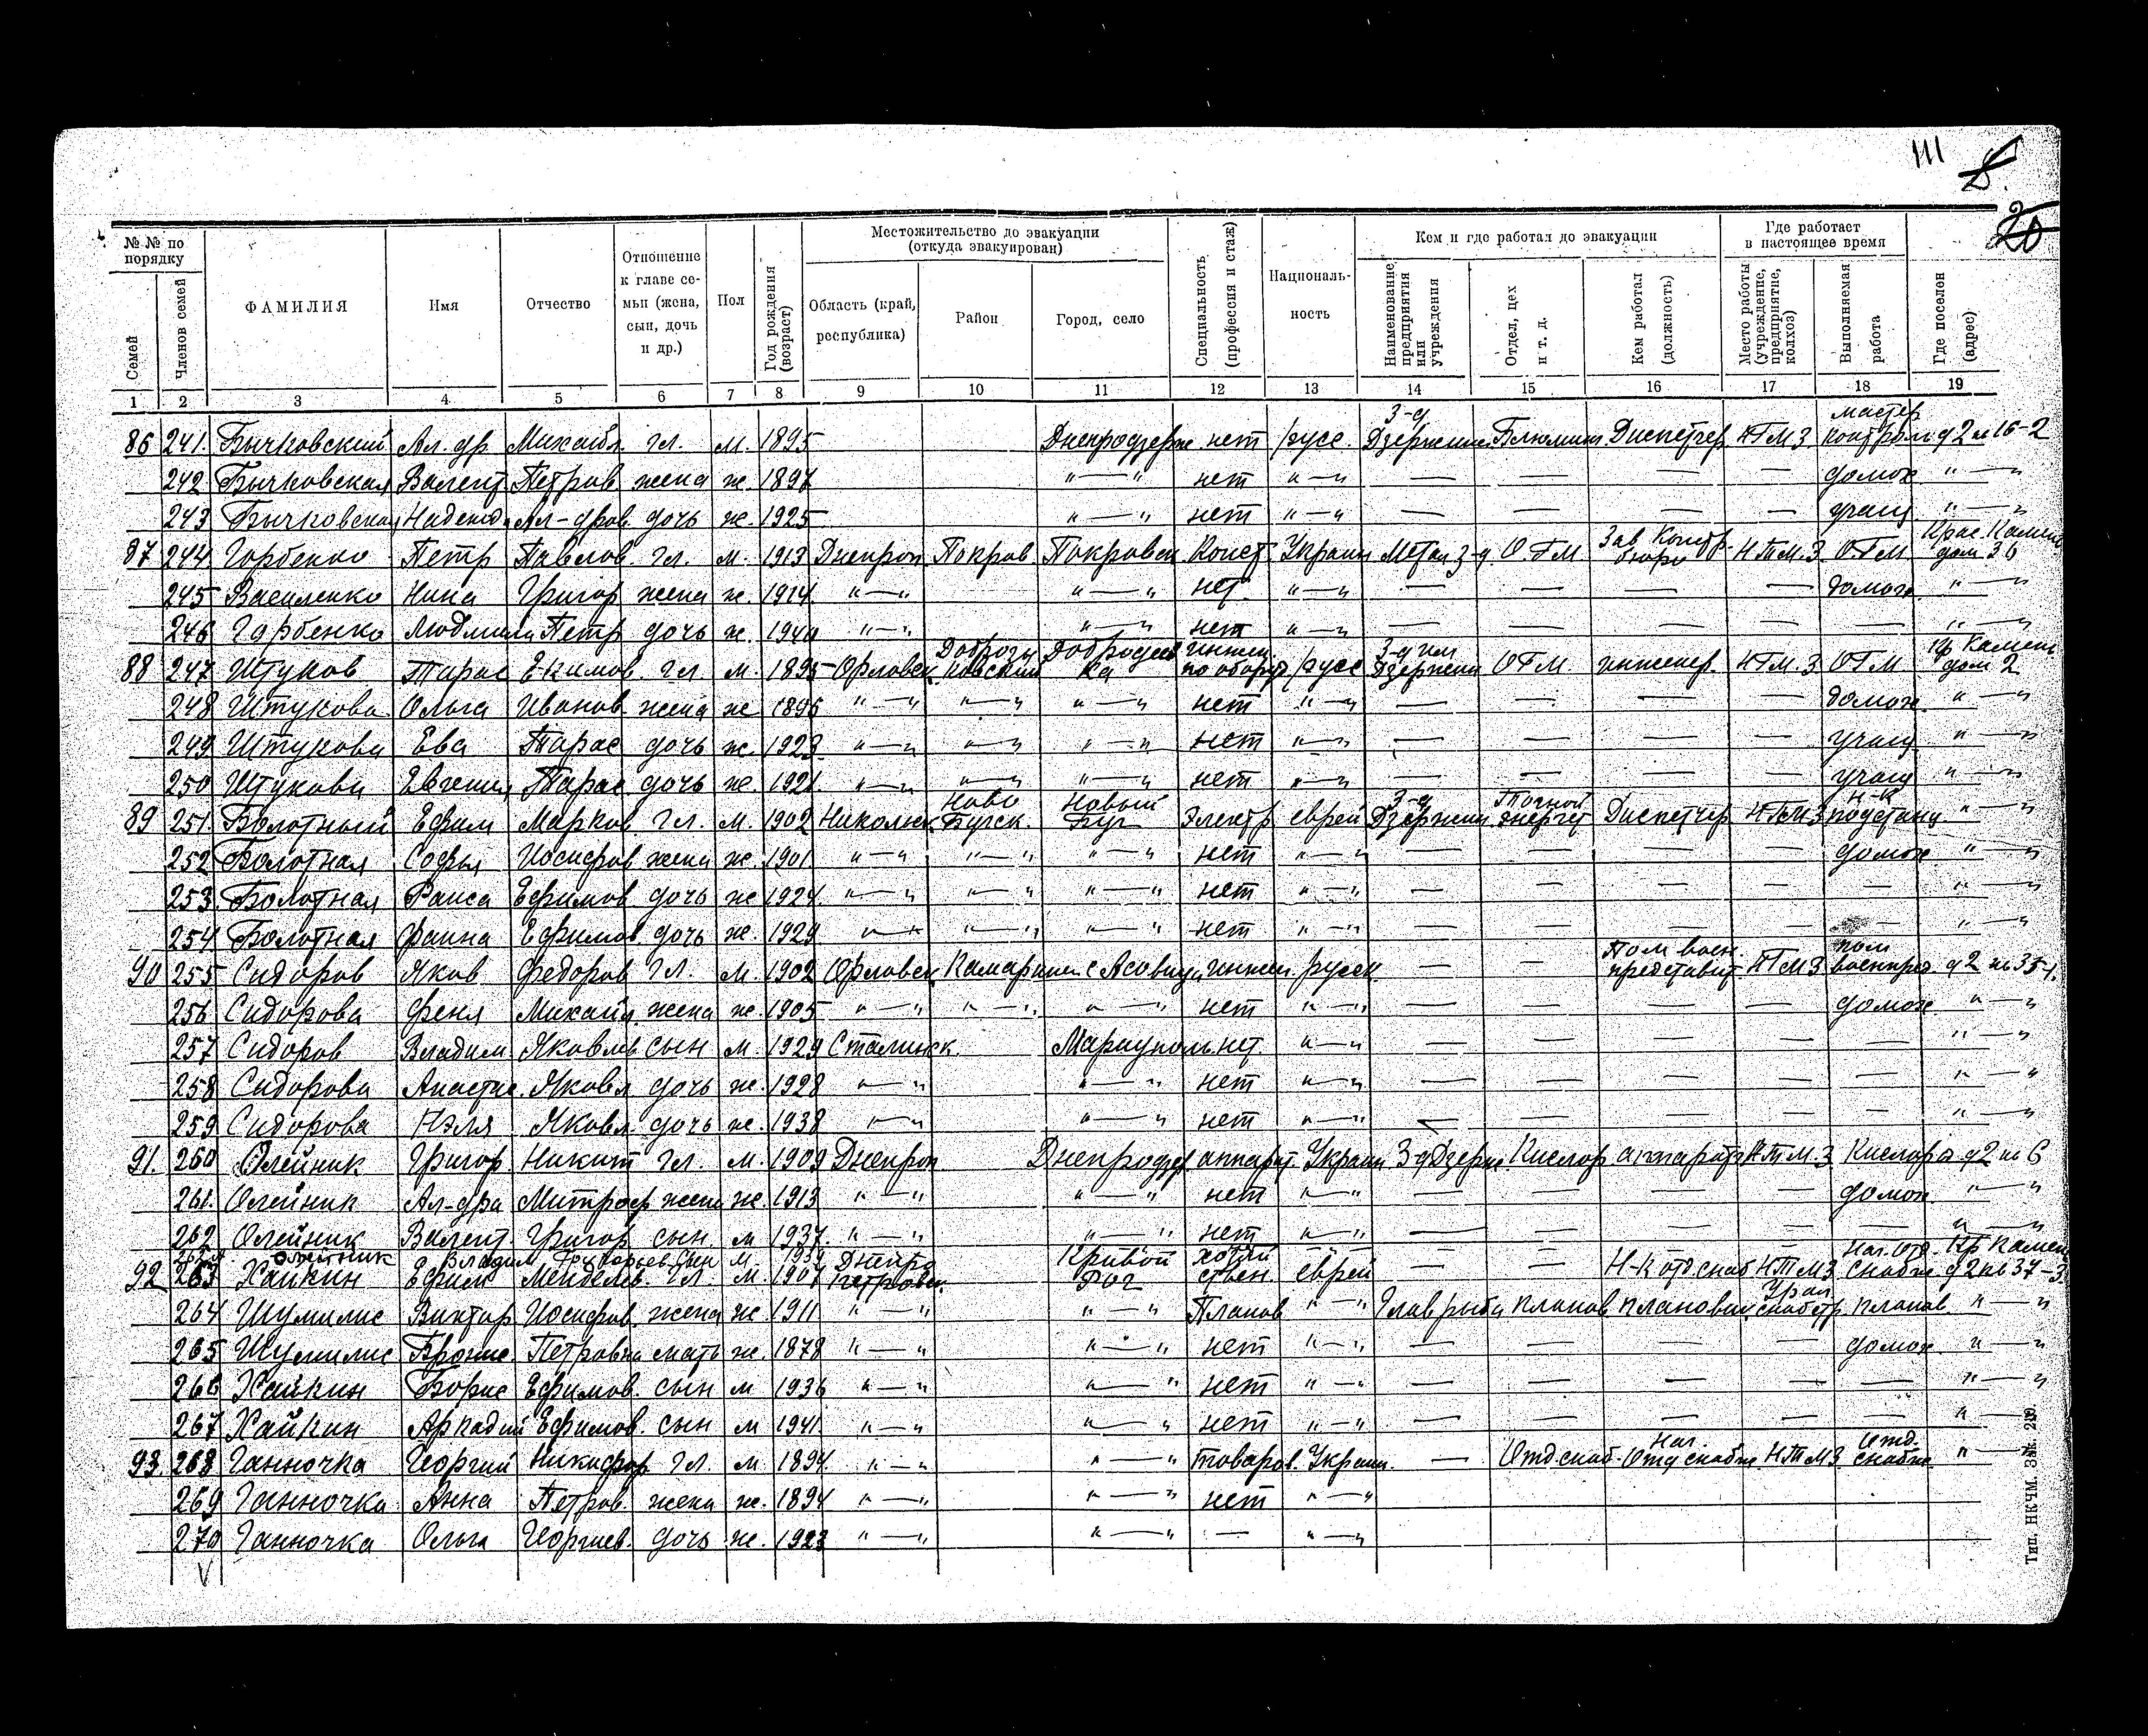 111
20
№ № по порядку
Местожительство до эвакуации (откуда эвакуирован)
Кем и где работал до эвакуации
Где работает в настоящее время
Семей
Членов семей
ФАМИЛИЯ
Имя
Отчество
Отношение к главе семьи (жена, сын, дочь и др.)
Пол
Год рождения (возраст)
Область (край, республика)
Район
Город, село
Специальность (профессия и стаж)
Националь-ность
Наименование предприятия или учреждения
Отдел, цех и т. д.
Кем работал (должность)
Место работы (учреждение, предприятие, колхоз)
Выполняемая работа
Где поселен (адрес)
1 2 3 4 5 6 7 8 9 10 11 12 13 14 15 16 17 18 19
86 241. Бычковский Ал. др. Михайл. гл. м. 1895 Днепродзерж нет русс. З-д Дзержин Блюминг Диспетчер НТМЗ мастер контроль д 2 к 16-2
242 Бычковская Валент Петров жена ж. 1897 "—" нет "—" — — — — домох "—"
243 Бычковская Надежд Ал-дров. дочь ж. 1925 "—" нет "—" — — — — учащ "—"
87 244 Горбенко Петр Павлов гл. м. 1913 Днепроп Покров. Покровск Конст. Украин Метал З-д О.Г.М. Зав. Констр. бюро НТМ.З О.Г.М. Крас. Камень дом 36
245 Василенко Нина Григор жена ж. 1914 "—" "—" нет "—" — — — — домох. "—"
246 Горбенко Людмила Петр дочь ж. 1940 "—" "—" нет "—" — — — — — "—"
88 247 Штуков Тарас Екимов гл м. 1895 Орловск инжен по оборуд русс З-д им Дзержин ОГМ. инженер НТМ.З ОГМ Кр Камень дом 2
248 Штукова Ольга Иванов жена ж 1896 "—" "—" "—" нет "—" — — — — домох. "—"
249 Штукова Ева Тарас дочь ж. 1923. "—" "—" "—" нет "—" — — — — учащ "—"
250 Штукова Евгения Тарас дочь ж. 1921. "—" "—" "—" нет "—" — — — — учащ "—"
89 251. Болотный Ефим Марков. гл. м. 1902 Николаевск Ново Бугск. Новый Буг Электр еврей З-д Дзержин энергет Диспетчер НТМЗ н-к подстанц "—"
252 Болотная Софья Иосифов жена ж. 1901 "—" "—" "—" нет "—" — — — — домох "—"
253 Болотная Раиса Ефимов дочь ж 1924. "—" "—" "—" нет "—" — — — — — "—"
254 Болотная Фаина Ефимов дочь ж. 1929 "—" "—" "—" нет "—" — — — — — "—"
90 255 Сидоров Яков Федоров гл. м. 1902 Орловск инжен. русск — — Пом воен. представит НТМЗ пом военпред. д 2 к 35-1.
256 Сидорова Феня Михайл. жена ж. 1905 "—" "—" "—" нет "—" — — — — домох "—"
257 Сидоров Владим Яковлев сын м. 1929 Сталинск. Мариуполь нет. "—" — — — — — "—"
258 Сидорова Анастас. Яковл дочь ж. 1928 "—" "—" нет "—" — — — — — "—"
259 Сидорова Нэля Яковл дочь ж. 1938 "—" "—" нет "—" — — — — — "—"
91. 260 Олейник Григор Никит гл. м. 1909 Днепроп Днепродзер аппарат. Украин З-д Дзерж Кислор аппарат НТМ.З Кислор д 2 к 6
261. Олейник Ал-дра Митроф жена ж. 1913 "—" "—" нет "—" — — — — домох. "—"
262 Олейник Валент. Григор сын. м 1937. "—" "—" нет "—" — — — — — "—"
Олейник Владим Григорьев. сын м 1939
92 263 Хайкин Ефим Менделев. гл. м. 1907 Днепропетровск. Кривой Рог хозяйствен еврей — — Н-к отд снаб НТМЗ Нач. отд. снабж Кр Камень д 2 кв 37-3.
264 Шумилис Виктор Иосифов. жена ж 1911 "—" "—" Планов "—" Главрыба планов плановик Урал планов "—"
265 Шумилис Броние. Петровна мать ж. 1878 "—" "—" нет "—" — — — — домох "—"
266 Хайкин Борис Ефимов. сын м 1936 "—" "—" нет "—" — — — — — "—"
267 Хайкин Аркадий Ефимов. сын м 1941. "—" "—" нет "—" — — — — — "—"
93. 268 Ганночка Георгий Никифор гл. м 1894. "—" "—" товаров. Украин. — Отд снаб. Нач. Отд снабж НТМЗ Отд. снабж "—"
269 Ганночка Анна Петров. жена ж. 1894 "—" "—" нет "—"
270 Ганночка Ольга Георгиев. дочь ж. 1923 "—" "—" — "—"
Тип. НКЧМ. Зак. 219.